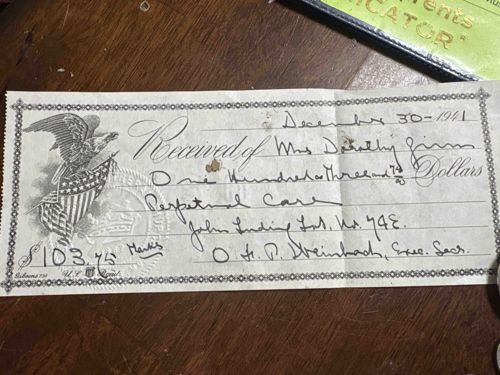 rrents
ICATOR"
December 30 - 1941
Received of Mrs Dorothy Zinn
One Hundred & Three and 75/00 Dollars
Perpetual Care
John Luding Lot. No. 74E.
$103.75 Thanks O. H. P. Steinbach, Exec. Secr.